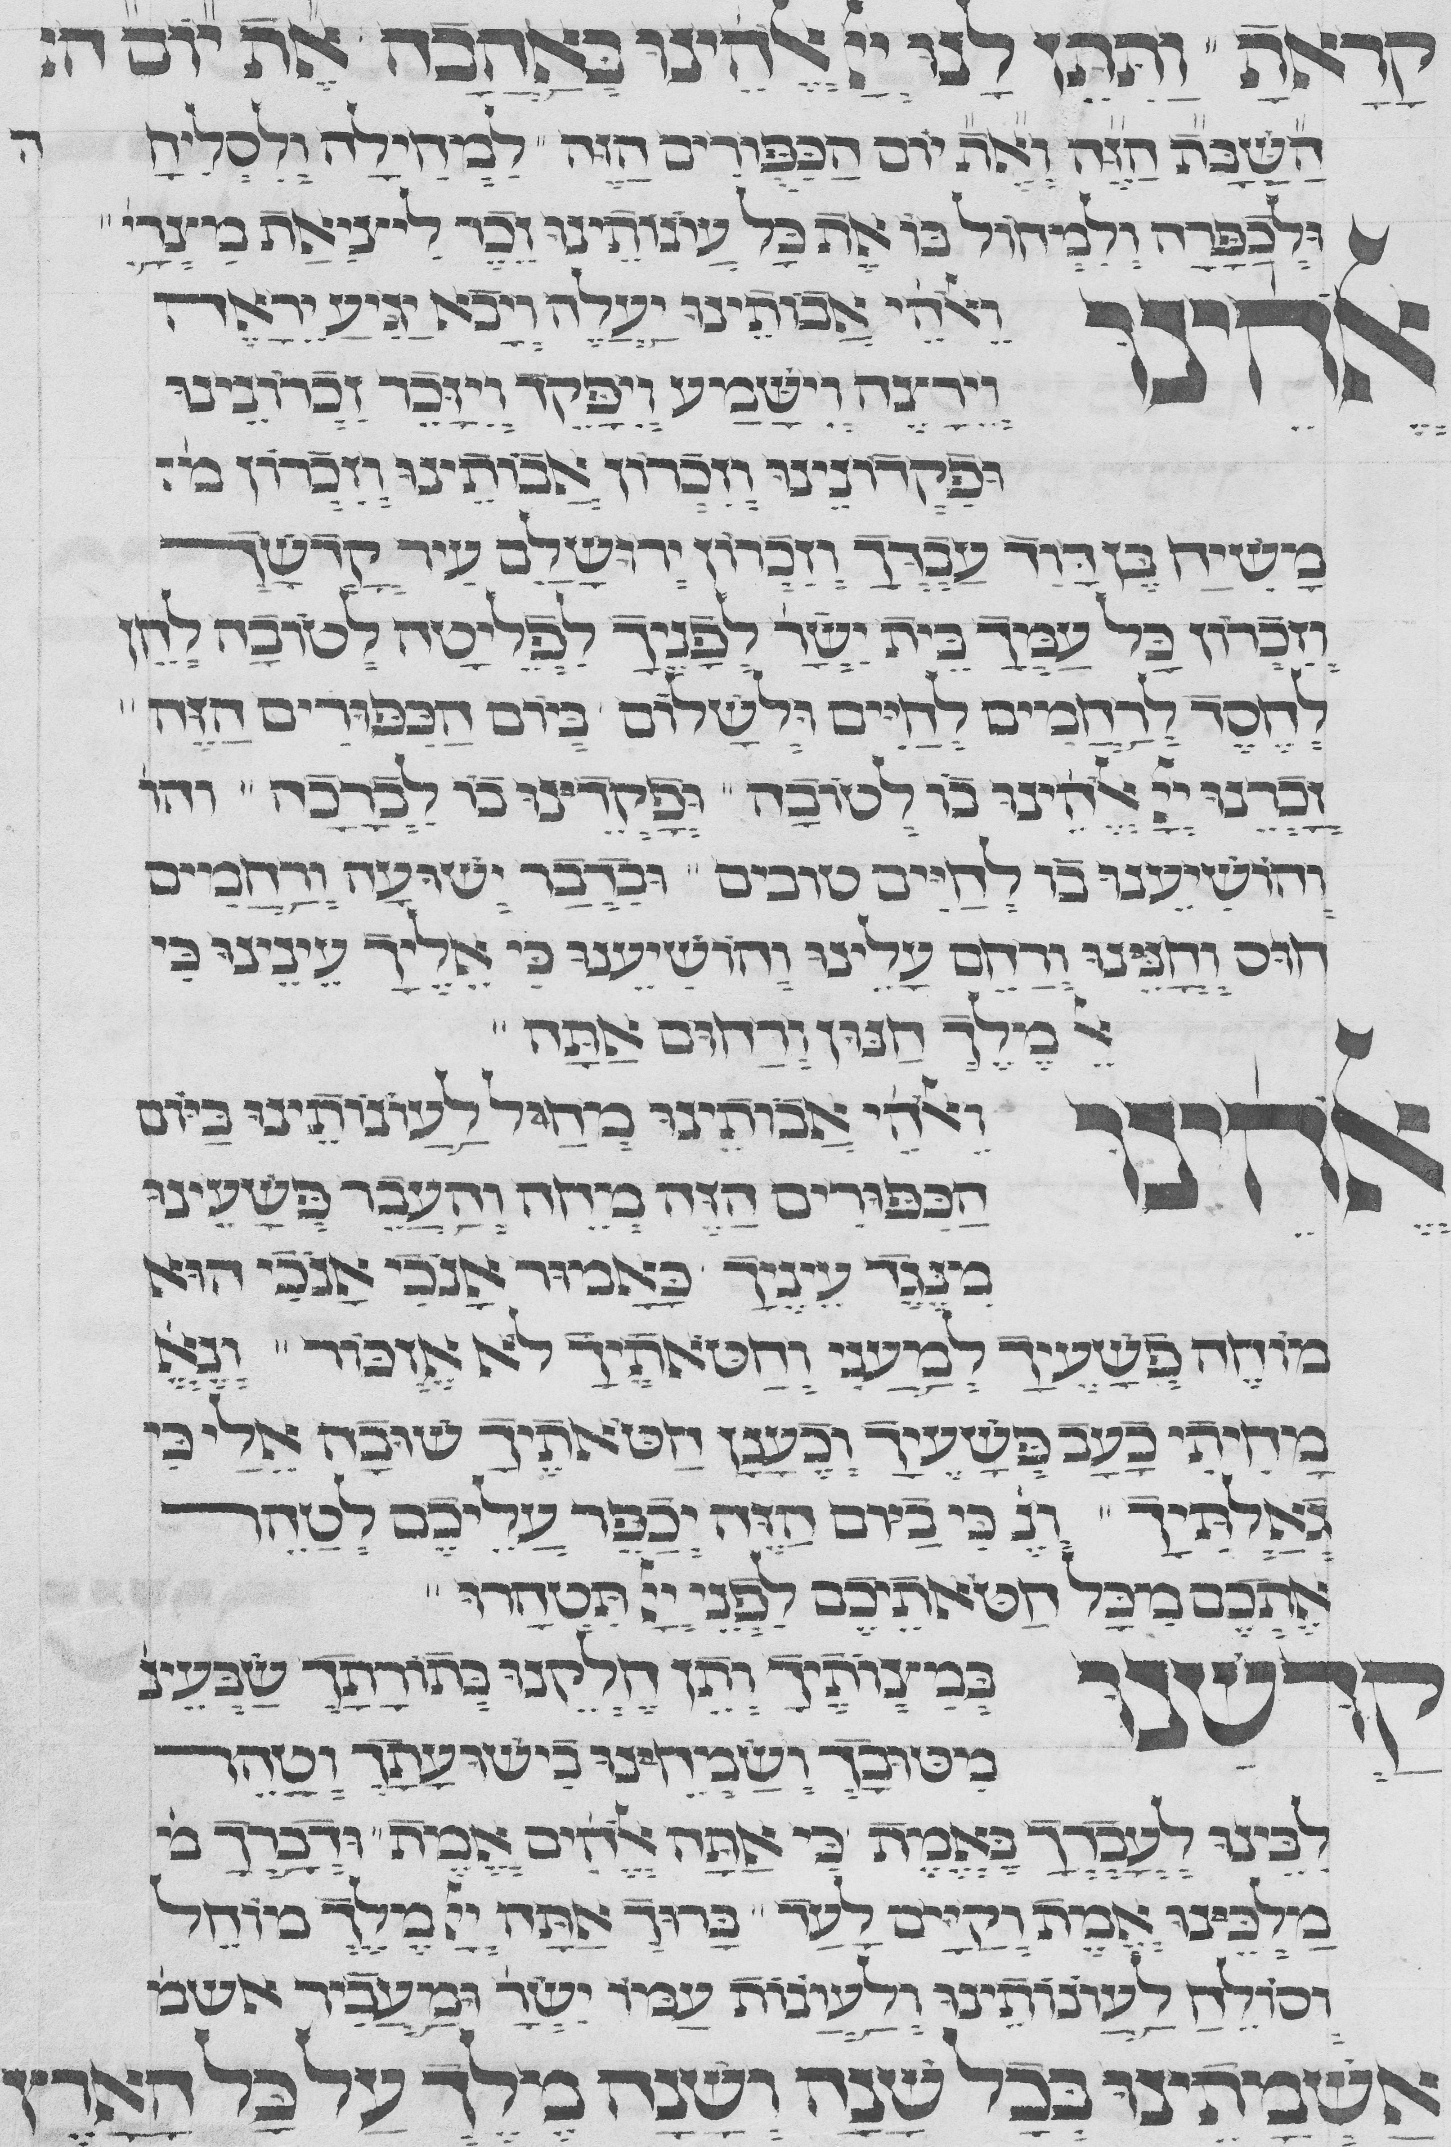 קָרָאתָ׃ וַתִּתֶּן לָנוּ יְיָ אֱלֹהֵינוּ בְּאַהֲבָה׳ אֶת יוֹם הז
הַשַּׁבָּת הַזֶּה וְאֶת יוֹם הַכִּפּוּרִים הַזֶּה׃ לִמְחִילָה וְלִסְלִיחָ ה
וּלְכַפָּרָה וְלִמְחוֹל בּוֹ אֶת כָּל עֲוֹנוֹתֵינוּ זֵכֶר לִיצִיאַת מִצְרָיִ׃
אֱלֹהֵינוּ וֵאלֹהֵי אֲבוֹתֵינוּ יַעֲלֶה וְיָבֹא יַגִּיעַ יֵרָאֶה
וְיֵרָצֶה וְיִשָּׁמַע וְיִפָּקֵד וְיִזָּכֵר זִכְרוֹנֵינוּ
וּפִקְדוֹנֵינוּ וְזִכְרוֹן אֲבוֹתֵינוּ וְזִכְרוֹן מ׳
מָשִׁיחַ בֶּן דָּוִד עַבְדָּךְ וְזִכְרוֹן יְרוּשָׁלַם עִיר קָדְשָׁךְ
וְזִכְרוֹן כָּל עַמְּךָ בֵּית יִשְׂרָ׳ לְפָנֶיךָ לִפְלֵיטָה לְטוֹבָה לְחֵן
לְחֶסֶד לְרַחֲמִים לְחַיִּים וּלְשָׁלוֹם׳ בְּיוֹם הַכִּפּוּרִים הַזֶּה׃
זָכְרֵנוּ יְיָ אֱלֹהֵינוּ בּוֹ לְטוֹבָה׃ וּפָקְדֵינוּ בוֹ לִבְרָכָה׃ והו׳
וְהוֹשִׁיעֵנוּ בוֹ לְחַיִּים טובים׃ וּבִדְבַר יְשׁוּעָה וְרַחֲמִים
חוּס וְחָנֵּינוּ וְרַחֵם עָלֵינוּ וְהוֹשִׁיעֵנוּ כִּי אֵלֶיךָ עֵינֵינוּ כִּי
אֵל מֶלֶךְ חַנּוּן וְרַחוּם אַתָּה׃
אֱלֹהֵינוּ וֵאלֹהֵי אֲבוֹתֵינוּ מְחַול לַעֲוֹנוֹתֵינוּ בְּיוֹם
הַכִּפּוּרִים הַזֶּה מְחֵה וְהַעֲבֵר פְּשָׁעֵינוּ
מִנֶּגֶד עֵינֶיךָ׳ כָּאָמוּר אָנֹכִי אָנֹכִי הוּא
מוֹחֶה פְשָׁעֶיךָ לְמַעֲנִי וְחַטֹּאתֶיךָ לֹא אֶזְכּוֹר׃ וְנֶא׳
מָחִיתִי כָעָב פְּשָׁעֶיךָ וְכֶעָנָן חַטֹּאתֶיךָ שׁוּבָה אֵלַי כִּי
גְאַלְתִּיךָ׃ וְנֶ׳ כִּי בַיּוֹם הַזֶּה יְכַפֵּר עֲלֵיכֶם לְטַהֵר
אֶתְכֶם מִכָּל חַטֹּאתֵיכֶם לִפְנֵי יְיָ תִּטְהָרוּ׃
קַדְּשֵׁנוּ בְּמִצְוֹתֶיךָ וְתֵן חֶלְקֵנוּ בְּתוֹרָתָךְ שַׂבְּעֵינ׳
מִטּוּבָךְ וְשַׂמְּחֵינוּ בִּישׁוּעָתָךְ וְטַהֵר
לִבֵּינוּ לְעָבְדְךָ בֶּאֱמֶת׳ כִּי אַתָּה אֱלֹהִים אֱמֶת׃ וּדְבָרְךָ מ׳
מַלְכֵּינוּ אֱמֶת וְקַיָּים לָעַד׃ בָּרוּךְ אַתָּה יְיָ מֶלֶךְ מוֹחֵל
וְסוֹלֵחַ לַעֲוֹנוֹתֵינוּ וְלַעֲוֹנוֹת עַמּוֹ יִשְׂרָ׳ וּמַעֲבִיר אשמ׳
אַשְׁמָתֵינוּ בְּכָל שָׁנָה וְשָׁנָה מֶלֶךְ עַל כָּל הָאָרֶץ